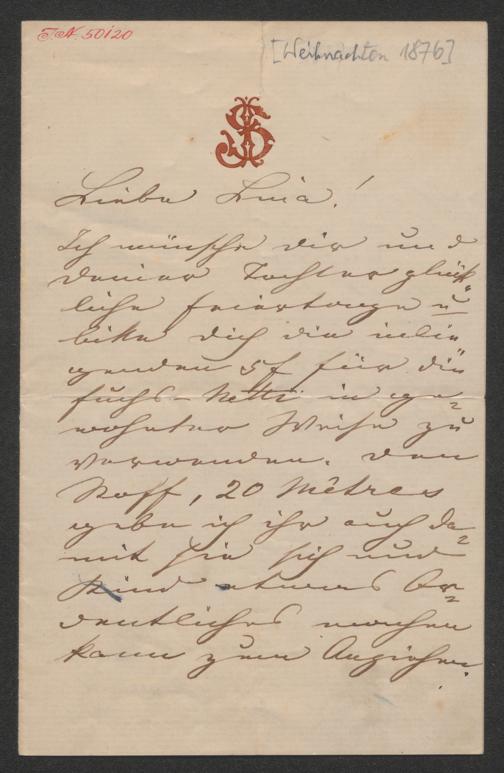 I.N. 50120
[Weihnachten 1876]
Liebe Lina!
Ich wünsche dir und
deiner Tochter glück
liche Feiertage u
bitte dich die inlie
genden 5f für die
Fuchs-Netti in ge=
wohnter Weise zu
verwenden. Den
Stoff, 20 Mêtres
gebe ich ihr auch da=
mit sie sich und
Kind etwas Or=
dentliches machen
kann zum Anziehen.